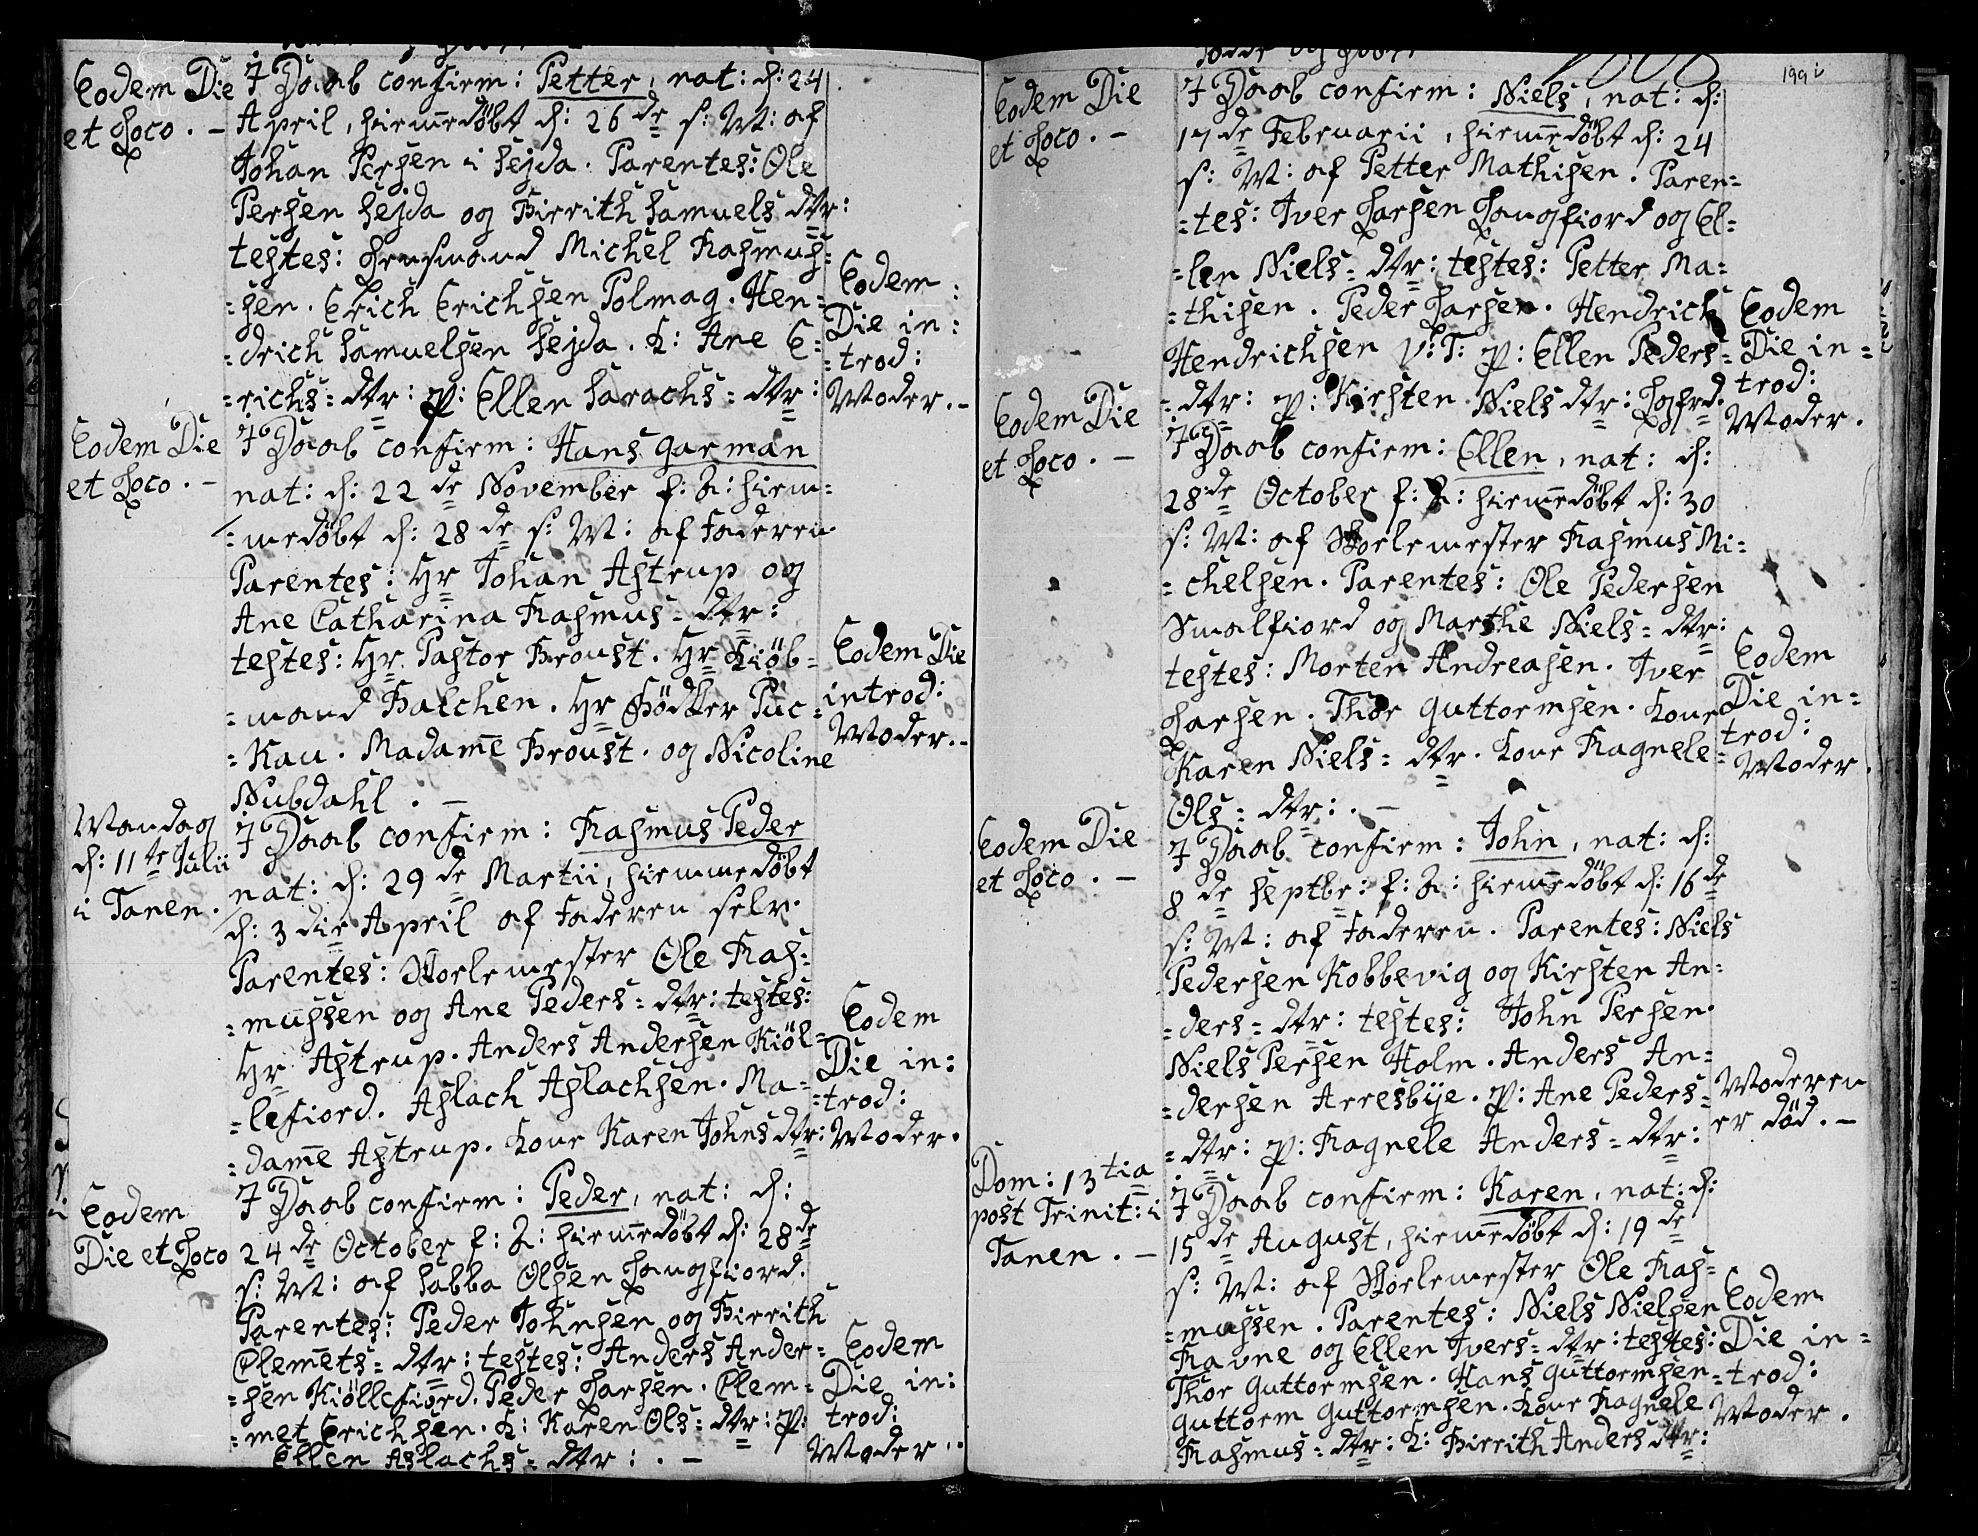 Eodem Die
et Loco. –
I Daab confirm: Petter, nat: d: 24
April, hiemedöbt d: 26de s: M: af
Johan Persen i Sejda. Parentes: Ole
Persen Sejda og Birrith Samuels dtr:
testes: Lensmand Michel Rasmus-
=sen. Erich Erichsen Polmag. Hen-
=drich Samuelsen Sejda. K: Ane E-
=richs= dtr: p: Ellen Sarachs= dtr:
Eodem
Die in:
=trod:
Moder. –
Eodem Die
et Loco. –
I Daab confirm: Hans Garman
nat: d: 22de November f: A: hiem-
=medöbt d: 28de s: M: af Faderen
Parentes: Hr Johan Astrup og
Ane Catharina Rasmus= dtr:
testes: Hr Pastor Broust. Hr Kiöb-
=mand Balchen. Hr Bödker Puc-
=kau. Madame Broust. og Nicoline
Nubdahl. –
Eodem Die
introd:
Moder. –
Mandag
d: 11te Julii
i Tanen.
I Daab confirm: Rasmus Peder
nat: d: 29de Martii, hiemmedöbt
d: 3die April af Faderen selv.
Parentes: Skolemester Ole Ras-
=mussen og Ane Peders= dtr: testes:
Hr Astrup. Anders Andersen Kiöl-
=lefiord. Aslach Aslachsen. Ma-
=dame Astrup. Kone Karen Johns dtr:
Eodem
Die in:
=trod:
Moder.
Eodem
Die et Loco
I Daab confirm: Peder, nat: d:
24de October f: A: hiemedöbt d: 28de
s: M: af Sabba Olsen Langfiord.
Parentes: Peder Johnsen og Birrith
Clemets= dtr: testes: Anders Ander-
=sen Kiöllefiord. Peder Larsen. Clem-
=met Erichsen. K: Karen Ols= dtr: p:
Ellen Aslachs= dtr: . –
Eodem
Die in:
trod:
Moder.
199
Eodem Die
et Loco. –
I Daab confirm: Niels, nat: d:
17de Februarii, hiemedöbt d: 24
s: M: af Petter Mathisen. Paren=
=tes: Iver Larsen Langfiord og El=
=len Niels= dtr: testes: Petter Ma=
=thisen. Peder Larsen. Hendrich
Hendrichsen v: T: p: Ellen Peders=
=dtr: p: Kirsten Niels dtr: Lgfrd.
Eodem
Die in=
trod:
Moder.
Eodem Die
et Loco. –
I Daab confirm: Ellen, nat: d:
28de October f: A: hiemedöbt d: 30
s: M: af Skolemester Rasmus Mi=
=chelsen. Parentes: Ole Pedersen
Smalfiord og Marthe Niels= dtr:
testes: Morten Andreasen. Iver
Larsen. Thor Guttormsen. Kone
Karen Niels= dtr. Kone Ragnele
Ols= dtr: . –
Eodem
Die in=
trod:
Moder.
Eodem Die
et Loco. –
I Daab confirm: John, nat: d:
8de Septbr: f: A: hiemedöbt d: 16de
s: M: af Faderen. Parentes: Niels
Pedersen Kobbevig og Kirsten An=
=ders= dtr: testes: John Persen.
Niels Persen Holm. Anders An=
=dersen Arresbye. p: Ane Peders=
=dtr: p: Ragnele Anders= dtr:
Moderen
er död. –
Dom: 13tia
post Trinit: i
Tanen. –
I Daab confirm: Karen, nat: d:
15de August, hiemedöbt d: 19de
s: M: af Skolemester Ole Ras=
=mussen. Parentes: Niels Nielsen
Ravne og Ellen Ivers= dtr: testes:
Thor Guttormsen. Hans Guttormsen
Guttorm Guttormsen. Kone Ragnele
Rasmus= dtr: K: Birrith Anders dtr:
Eodem
Die in=
=trod:
Moder.